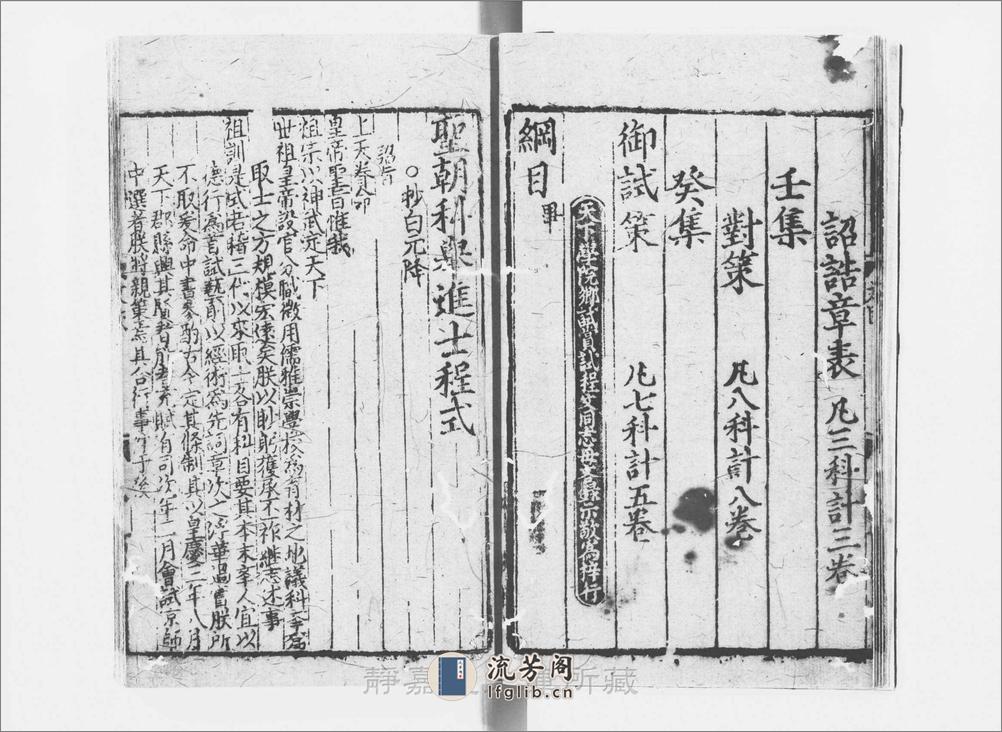 詔誥章表 凡三科計三卷
壬集
對策 凡八科計八卷
癸集
御試策 凡七科計五卷
天下學院鄉試會試程文同志毋
綱目畢
聖朝科舉進士程式
○抄白元降
詔旨
上天眷命
皇帝聖旨惟我
祖宗以神武定天下
世祖皇帝設官分職徵用儒雅崇學校為育材之地議科舉為
取士之方規模宏遠矣朕以眇躬獲承丕祚繼志述事
祖訓是式若稽三代以來取士各有科目要其本末舉人宜以
德行為首試藝則以經術為先詞章次之浮華過實朕所
不取爰命中書參酌古今定其條制其以皇慶三年八月
天下郡縣興其賢者能者充賦有司次年二月會試京師
中選者朕將親策焉具合行事宜于後
靜嘉 所藏
流芳阁
lfglib.cn